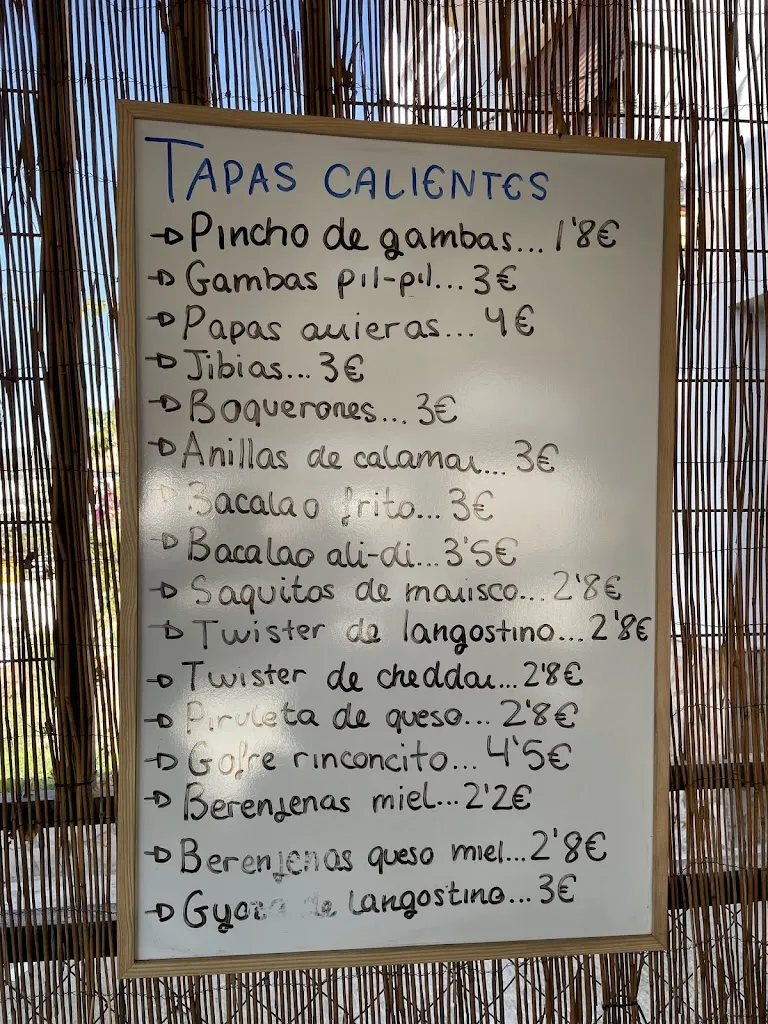 TAPAS CALIENTES
→Pincho de gambas... 1'8€
→Gambas pil-pil... 3€
→Papas auieras... 4€
→Jibias... 3€
→Boquerones... 3€
→Anillas de calamar... 3€
→Bacalao frito... 3€
→Bacalao ali-oli... 3'5€
→Saquitos de marisco... 2'8€
→Twister de langostino... 2'8€
→Twister de cheddar... 2'8€
→Piruleta de queso... 2'8€
→Gofre rinconcito... 4'5€
→Berenjenas miel... 2'2€
→Berenjenas queso miel... 2'8€
→Gyoza de langostino... 3€